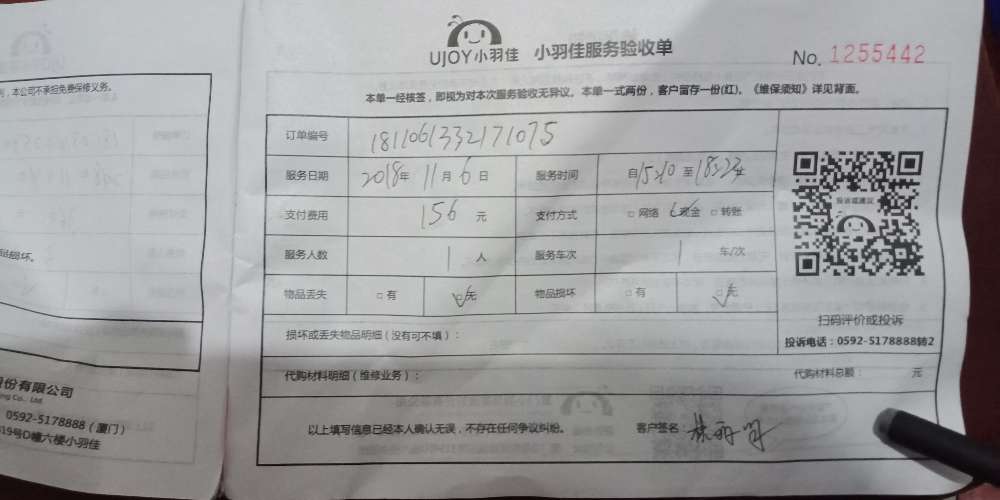 UJOY小羽佳 小羽佳服务验收单
No. 1255442
本单一经核签，即视为对本次服务验收无异议。本单一式两份，客户留存一份(红)。《维保须知》详见背面。
订单编号 1811061332171075
服务日期 2018年 11月 6日 服务时间 自15:10至18:23止
支付费用 156 元 支付方式 □网络 □现金 □转账
服务人数 1 人 服务车次 1 车/次
物品丢失 □有 □无 物品损坏 □有 □无
投诉或建议
扫码评价或投诉
投诉电话：0592-5178888转2
损坏或丢失物品明细（没有可不填）：
代购材料明细（维修业务）： 代购材料总额： 元
以上填写信息已经本人确认无误，不存在任何争议纠纷。 客户签名：
，本公司不承担免费保修义务。
损坏。
份有限公司
ing Co., Ltd.
0592-5178888（厦门）
19号D幢六楼小羽佳